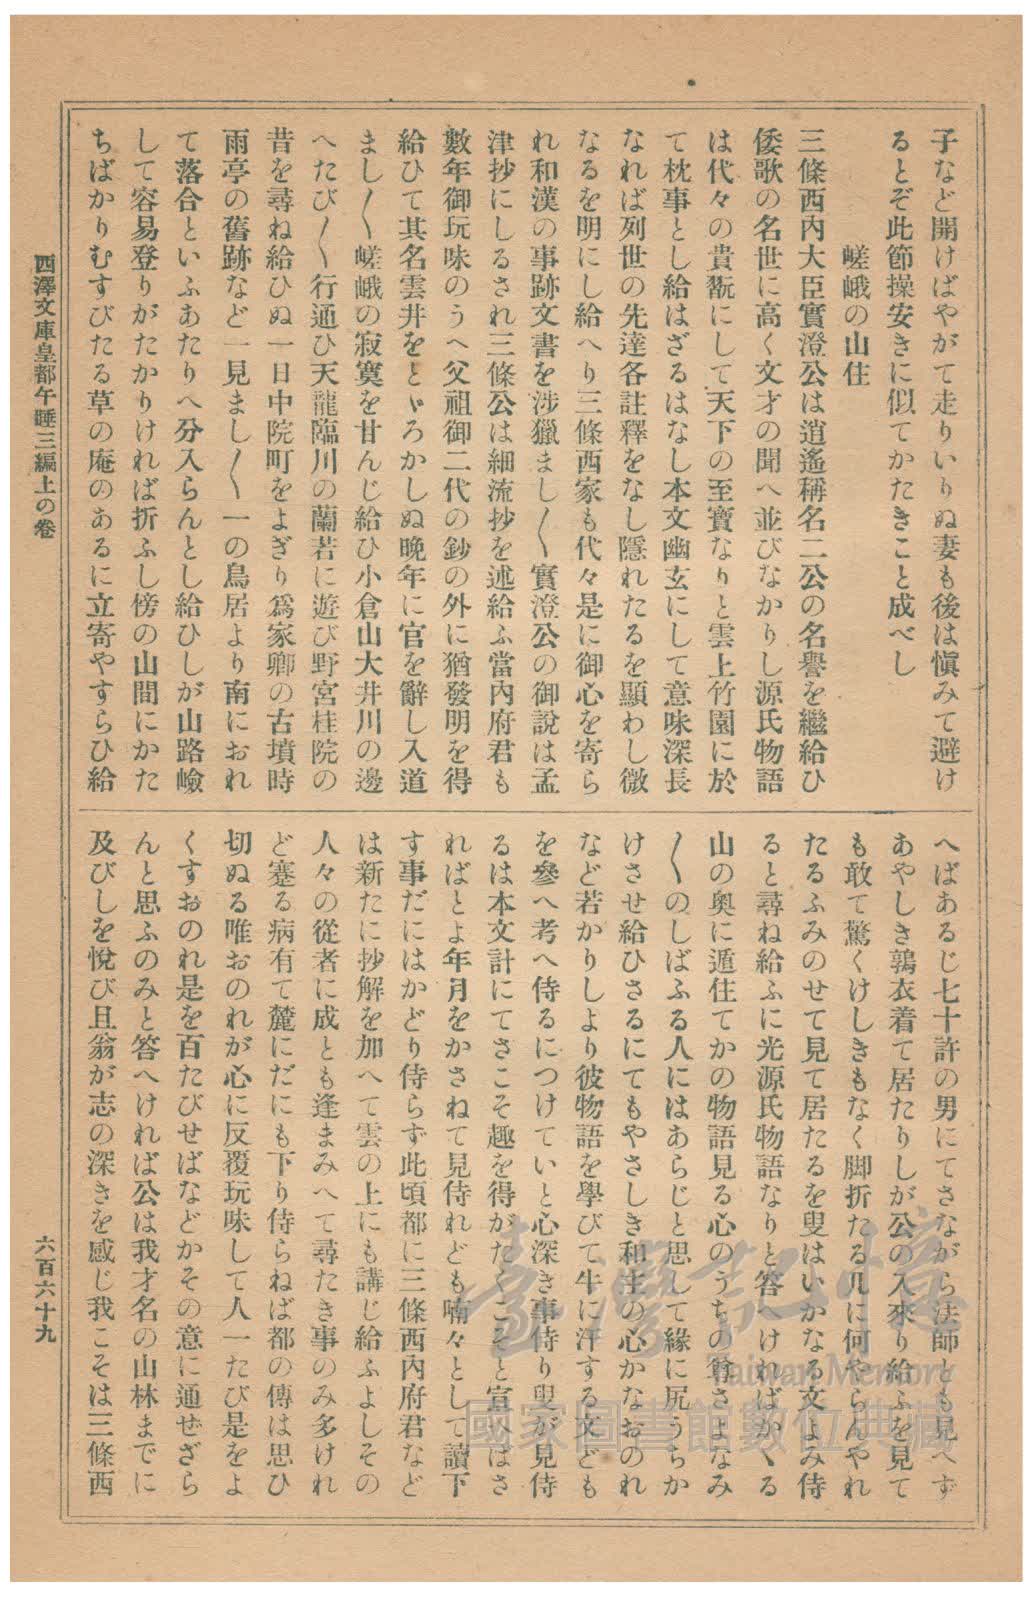 子など開けばやがて走りいりぬ妻も後は愼みて避け
るとぞ此節操安きに似てかたきこと成べし
嵯峨の山住
三條西內大臣實澄公は逍遙稱名二公の名譽を繼給ひ
倭歌の名世に高く文才の聞へ並びなかりし源氏物語
は代々の貴翫にして天下の至寶なりと雲上竹園に於
て枕事とし給はざるはなし本文幽玄にして意味深長
なれば列世の先達各註釋をなし隱れたるを顯わし微
なるを明にし給へり三條西家も代々是に御心を寄ら
れ和漢の事跡文書を涉獵まし〳〵實澄公の御說は孟
津抄にしるされ三條公は細流抄を述給ふ當內府君も
數年御玩味のうへ父祖御二代の鈔の外に猶發明を得
給ひて其名雲井をとゞろかしぬ晩年に官を辭し入道
まし〳〵嵯峨の寂寞を甘んじ給ひ小倉山大井川の邊
へたび〳〵行通ひ天龍臨川の蘭若に遊び野宮桂院の
昔を尋ね給ひぬ一日中院町をよぎり爲家卿の古墳時
雨亭の舊跡など一見まし〳〵一の鳥居より南におれ
て落合といふあたりへ分入らんとし給ひしが山路嶮
して容易登りがたかりければ折ふし傍の山間にかた
ちばかりむすびたる草の庵のあるに立寄やすらひ給
へばあるじ七十許の男にてさながら法師とも見へず
あやしき鶉衣着て居たりしが公の入來り給ふを見て
も敢て驚くけしきもなく脚折たる几に何やらんやれ
たるふみのせて見て居たるを叟はいかなる文よみ侍
ると尋ね給ふに光源氏物語なりと答へければかゝる
山の奧に遁住てかの物語見る心のうちの尊さよなみ
〳〵のしばふる人にはあらじと思して緣に尻うちか
けさせ給ひさるにてもやさしき和主の心かなおのれ
など若かりしより彼物語を學びて牛に汗する文ども
を參へ考へ侍るにつけていと心深き事侍り叟が見侍
るは本文計にてさこそ趣を得がたくこそと宣へばさ
ればとよ年月をかさねて見侍れども喃々として讀下
す事だにはかどり侍らず此頃都に三條西內府君など
は新たに抄解を加へて雲の上にも講じ給ふよしその
人々の從者に成とも逢まみへて尋たき事のみ多けれ
ど蹇る病有て麓にだにも下り侍らねば都の傳は思ひ
切ぬる唯おのれが心に反覆玩味して人一たび是をよ
くすおのれ是を百たびせばなどかその意に通ぜざら
んと思ふのみと答へければ公は我才名の山林までに
及びしを悅び且翁が志の深きを感じ我こそは三條西
西澤文庫皇都午睡三編上の卷
六百六十九
臺灣記憶
Taiwan Memory
國家圖書館數位典藏